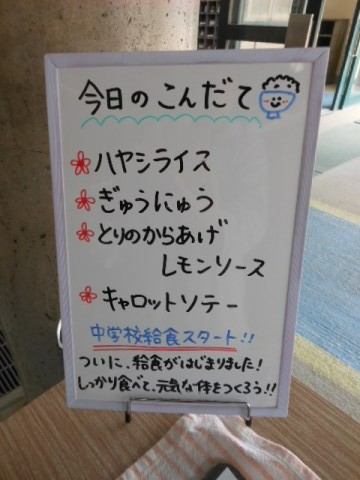 今日のこんだて
ハヤシライス
ぎゅうにゅう
とりのからあげ
レモンソース
キャロットソテー
中学校給食スタート!!
ついに、給食がはじまりました!
しっかり食べて、元気な体をつくろう!!